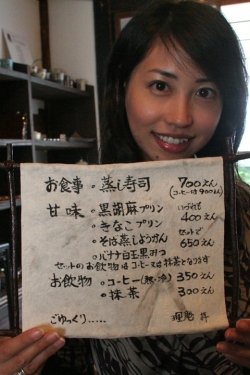 お食事・蒸し寿司 700えん
(コーヒー付 900えん)
甘味・黒胡麻プリン いづれも
・きなこプリン 400えん
・そば蒸しようかん セットで
・バナナ白玉黒みつ 650えん
セットのお飲物はコーヒー又は抹茶となります
お飲物・コーヒー(熱・冷) 350えん
・抹茶 300えん
ごゆっくり・・・・・